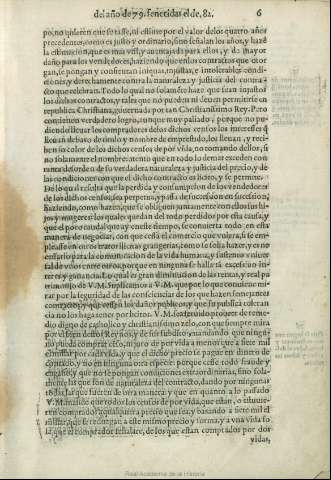 del año de 79. fenecidas el de, 82. 6
po, no quieren que se tasse, ni estime por el valor de los quatro años
precedentes, como es justo y ordinario, sino señalan los años, y haze
la estimacion que es mas vtil, y auentajada para ellos, y de mayor
daño para los vendedores, haziendo que en los contractos que otor
gan, se pongan y continuan iniquas, injustas, e intolerables condi-
ciones, y derechamente contra la naturaleza y justicia del contra
cto que celebran. Todo lo qual no solamēte haze que sean injustos
los dichos contractos, y tales que no pueden ni deuen permitirse en
republica Christiana, gouernada por tan Christianissimo Rey. Pero
contienen verdadero logro, aunque muy paliado, porque no pu-
diendo lleuar los compradores de los dichos censos los intereses q̄
lleuan debaxo de titulo y nombre de emprestido, los lleuan, y reci-
ben so color de los dichos censos de por vida, no comando dellos, si
no solamente el nombre: atento que en todo lo demas exceden con
tanta desorden de su verdadera naturaleza y justicia del precio, y de
las condiciones con que el dicho contracto es licito, y se permite.
De lo qual resulta que la perdida y consumpcion de los vendedores
de los dichos censos, sea perpetua, y passe de succession en succession,
haziendo, como hazen, que se obliguen juntamente con ellos sus hi-
jos y mugeres: los quales quedan del todo perdidos por esta causa, y
que el poco caudal que ay en este tiempo, se conuierta todo en esta
manera de negociar, con que cessa el comercio que vuiera, si se em-
pleasse en otros tratos licitos y grangerias, como se solia hazer, y es ne
cessario para la comunicacion de la vida humana, y sustento vniuer
sal de vnos entre otros, porque en ninguna se hallaria excessiuo in-
teres y ganancia. De lo qual es gran diminucion de las rentas, y real pa
trimonio de V. M. Suplicamos a V. M. que por lo que conuiene mi-
rar por la seguridad de las consciencias de los que hazen semejantes
contractos, y que cessen los daños publicos, y que la publica toleran
cia no los haga tener por licitos. V. M. sea seruido proueer de reme-
dio digno de catholico y christianissimo zelo, con que siempre mira
por el bien destos Reynos, y de sus subditos: mandando que ningūo
no pueda comprar censo, ni juro de por vida a menor que a siete mil
el millar por cada vida, y que el dicho precio se pague en dinero de
contado, y no en ninguna otra especie: porque cesse todo fraude y
engaño, y que no se pongan condiciones extraordinarias, sino sola-
mente las que son de naturaleza del contracto, dando por ningunas
todas las que fueren de otra manera: y que en quanto a lo passado
V. M. mande que todos los censos de por vida, que estan, o estuuie-
ren comprados a qualquiera precio que sea, y baxando a siete mil el
millar, que se reduzgan a este mismo precio y forma, y a vna vida so
la, que el comprador señalare, de los que estan comprados por dos
vidas,
Real Academia de la Historia